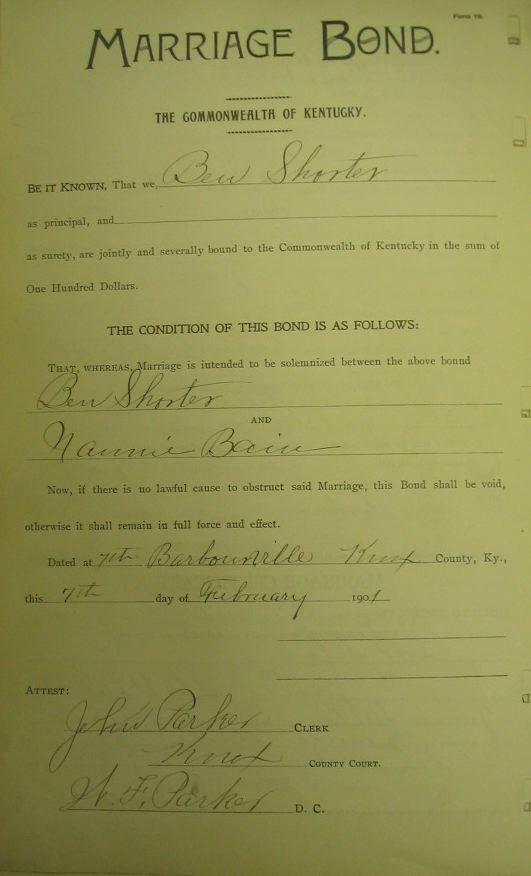 Form 78.
MARRIAGE BOND.
THE COMMONWEALTH OF KENTUCKY.
BE IT KNOWN, That we, Ben Shorter
as principal, and
as surety, are jointly and severally bound to the Commonwealth of Kentucky in the sum of
One Hundred Dollars.
THE CONDITION OF THIS BOND IS AS FOLLOWS:
THAT, WHEREAS, Marriage is intended to be solemnized between the above bound
Ben Shorter
AND
Nannie Bain
Now, if there is no lawful cause to obstruct said Marriage, this Bond shall be void,
otherwise it shall remain in full force and effect.
Dated at 7th Barbourville Knox County, Ky.,
this 7th day of February 1901
ATTEST:
John Parker CLERK
Knox COUNTY COURT.
W. F. Parker D. C.